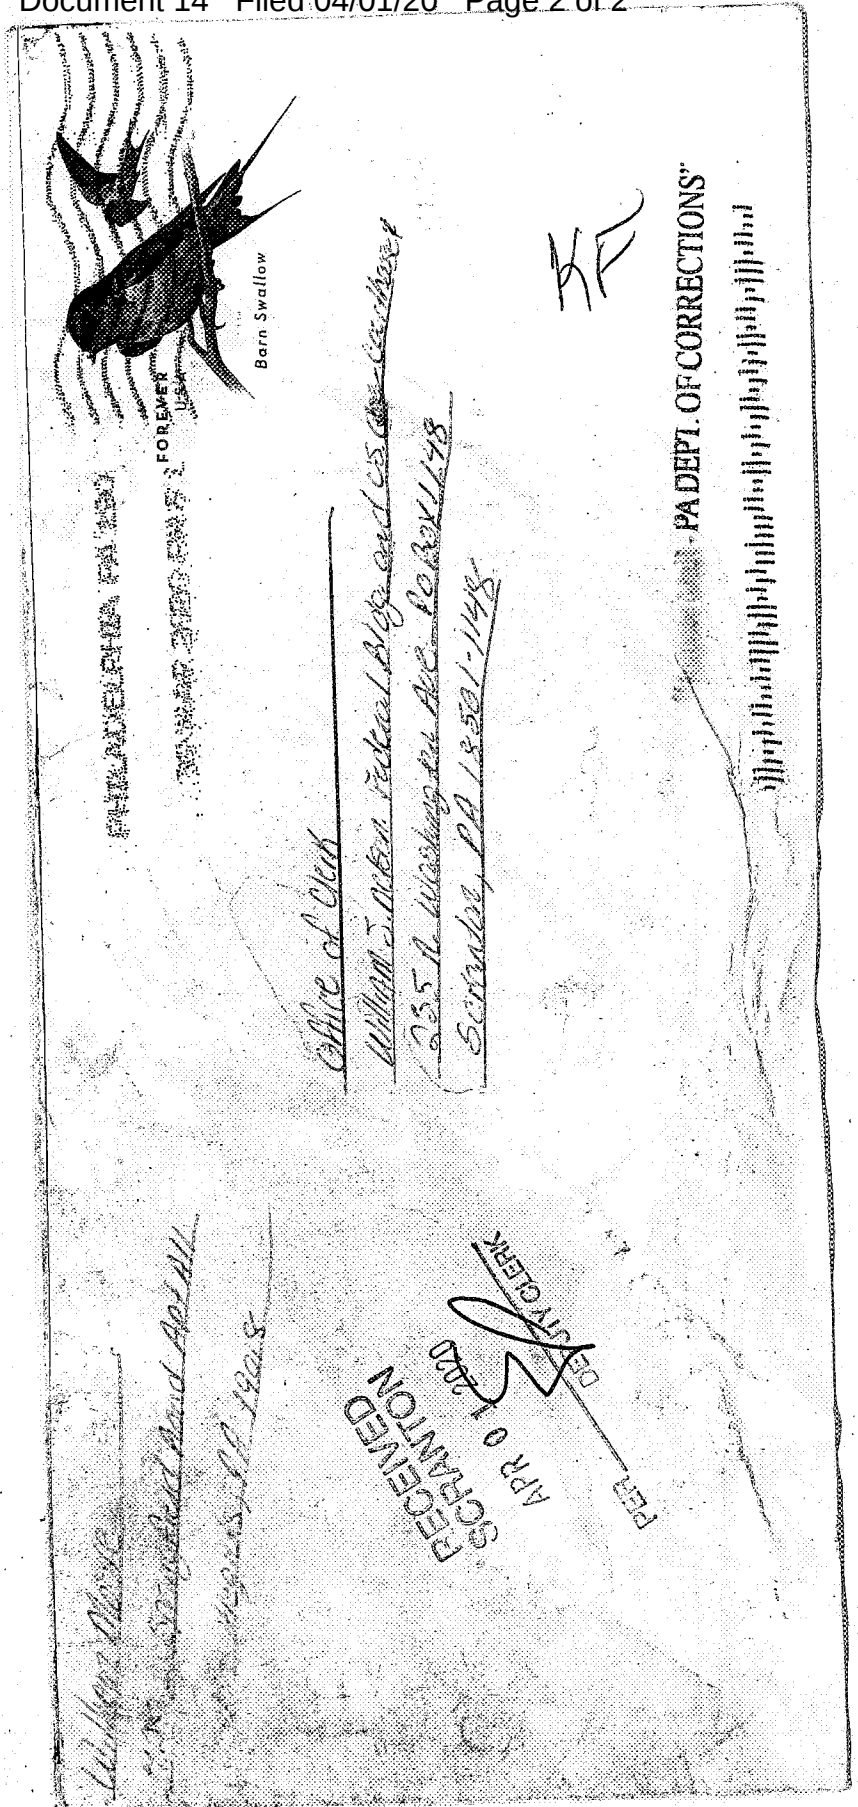 Document 14 Filed 04/01/20 Page 2 of 2
William Moore
Springfield Road Apt
PA
PHILADELPHIA PA
FOREVER
USA
Barn Swallow
Office of Clerk
William J. Nelson Federal Bldg and US Courthouse
235 N. Washington Ave PO Box 1148
Scranton, PA 18501-1148
RECEIVED
SCRANTON
APR 01 2020
PER
DEPUTY CLERK
PA DEPT. OF CORRECTIONS"